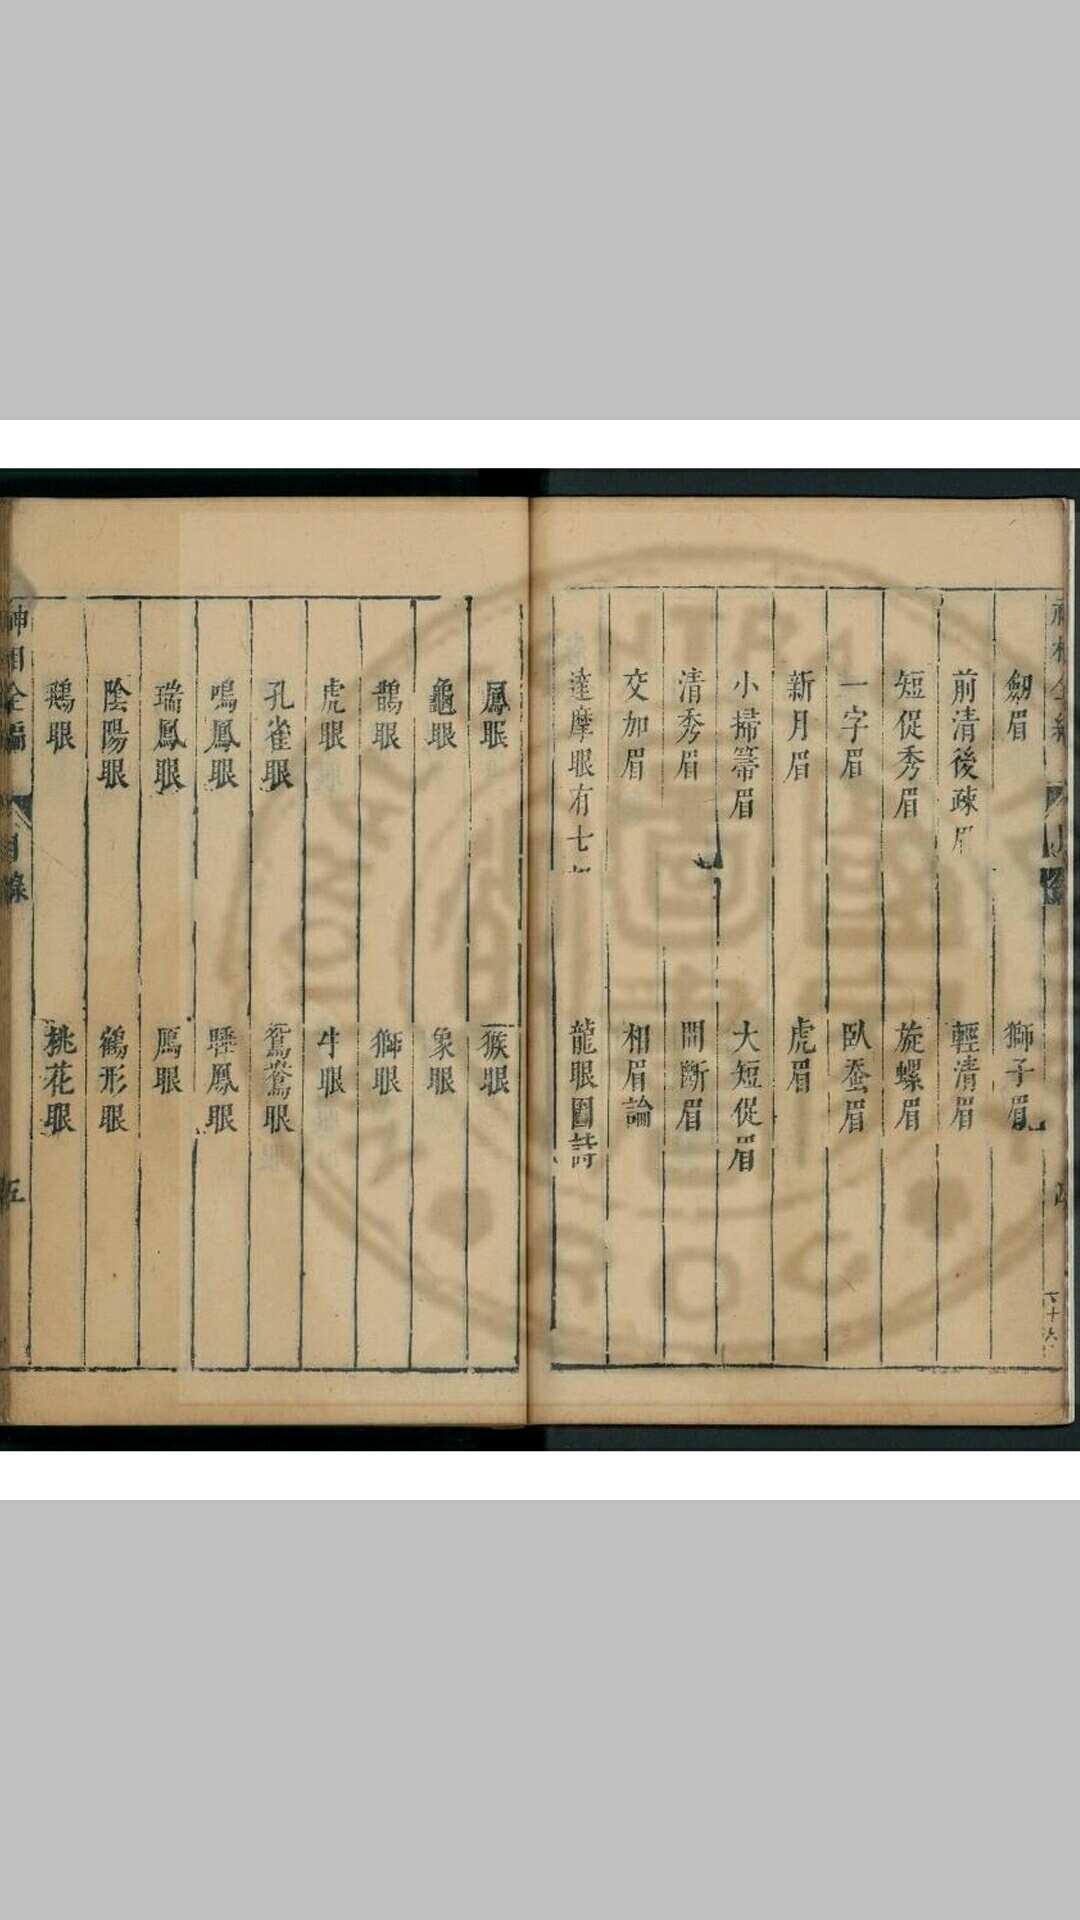 劔眉
獅子眉
前清後疎眉
輕清眉
短促秀眉
旋螺眉
一字眉
臥蚕眉
新月眉
虎眉
小掃箒眉
大短促眉
清秀眉
間斷眉
交加眉
相眉論
達摩眼有七
龍眼圖詩
鳳眼
猴眼
龜眼
象眼
鵲眼
獅眼
虎眼
牛眼
孔雀眼
鴛鴦眼
鳴鳳眼
睡鳳眼
瑞鳳眼
鴈眼
陰陽眼
鶴形眼
鵝眼
桃花眼
神相全編
目錄
五